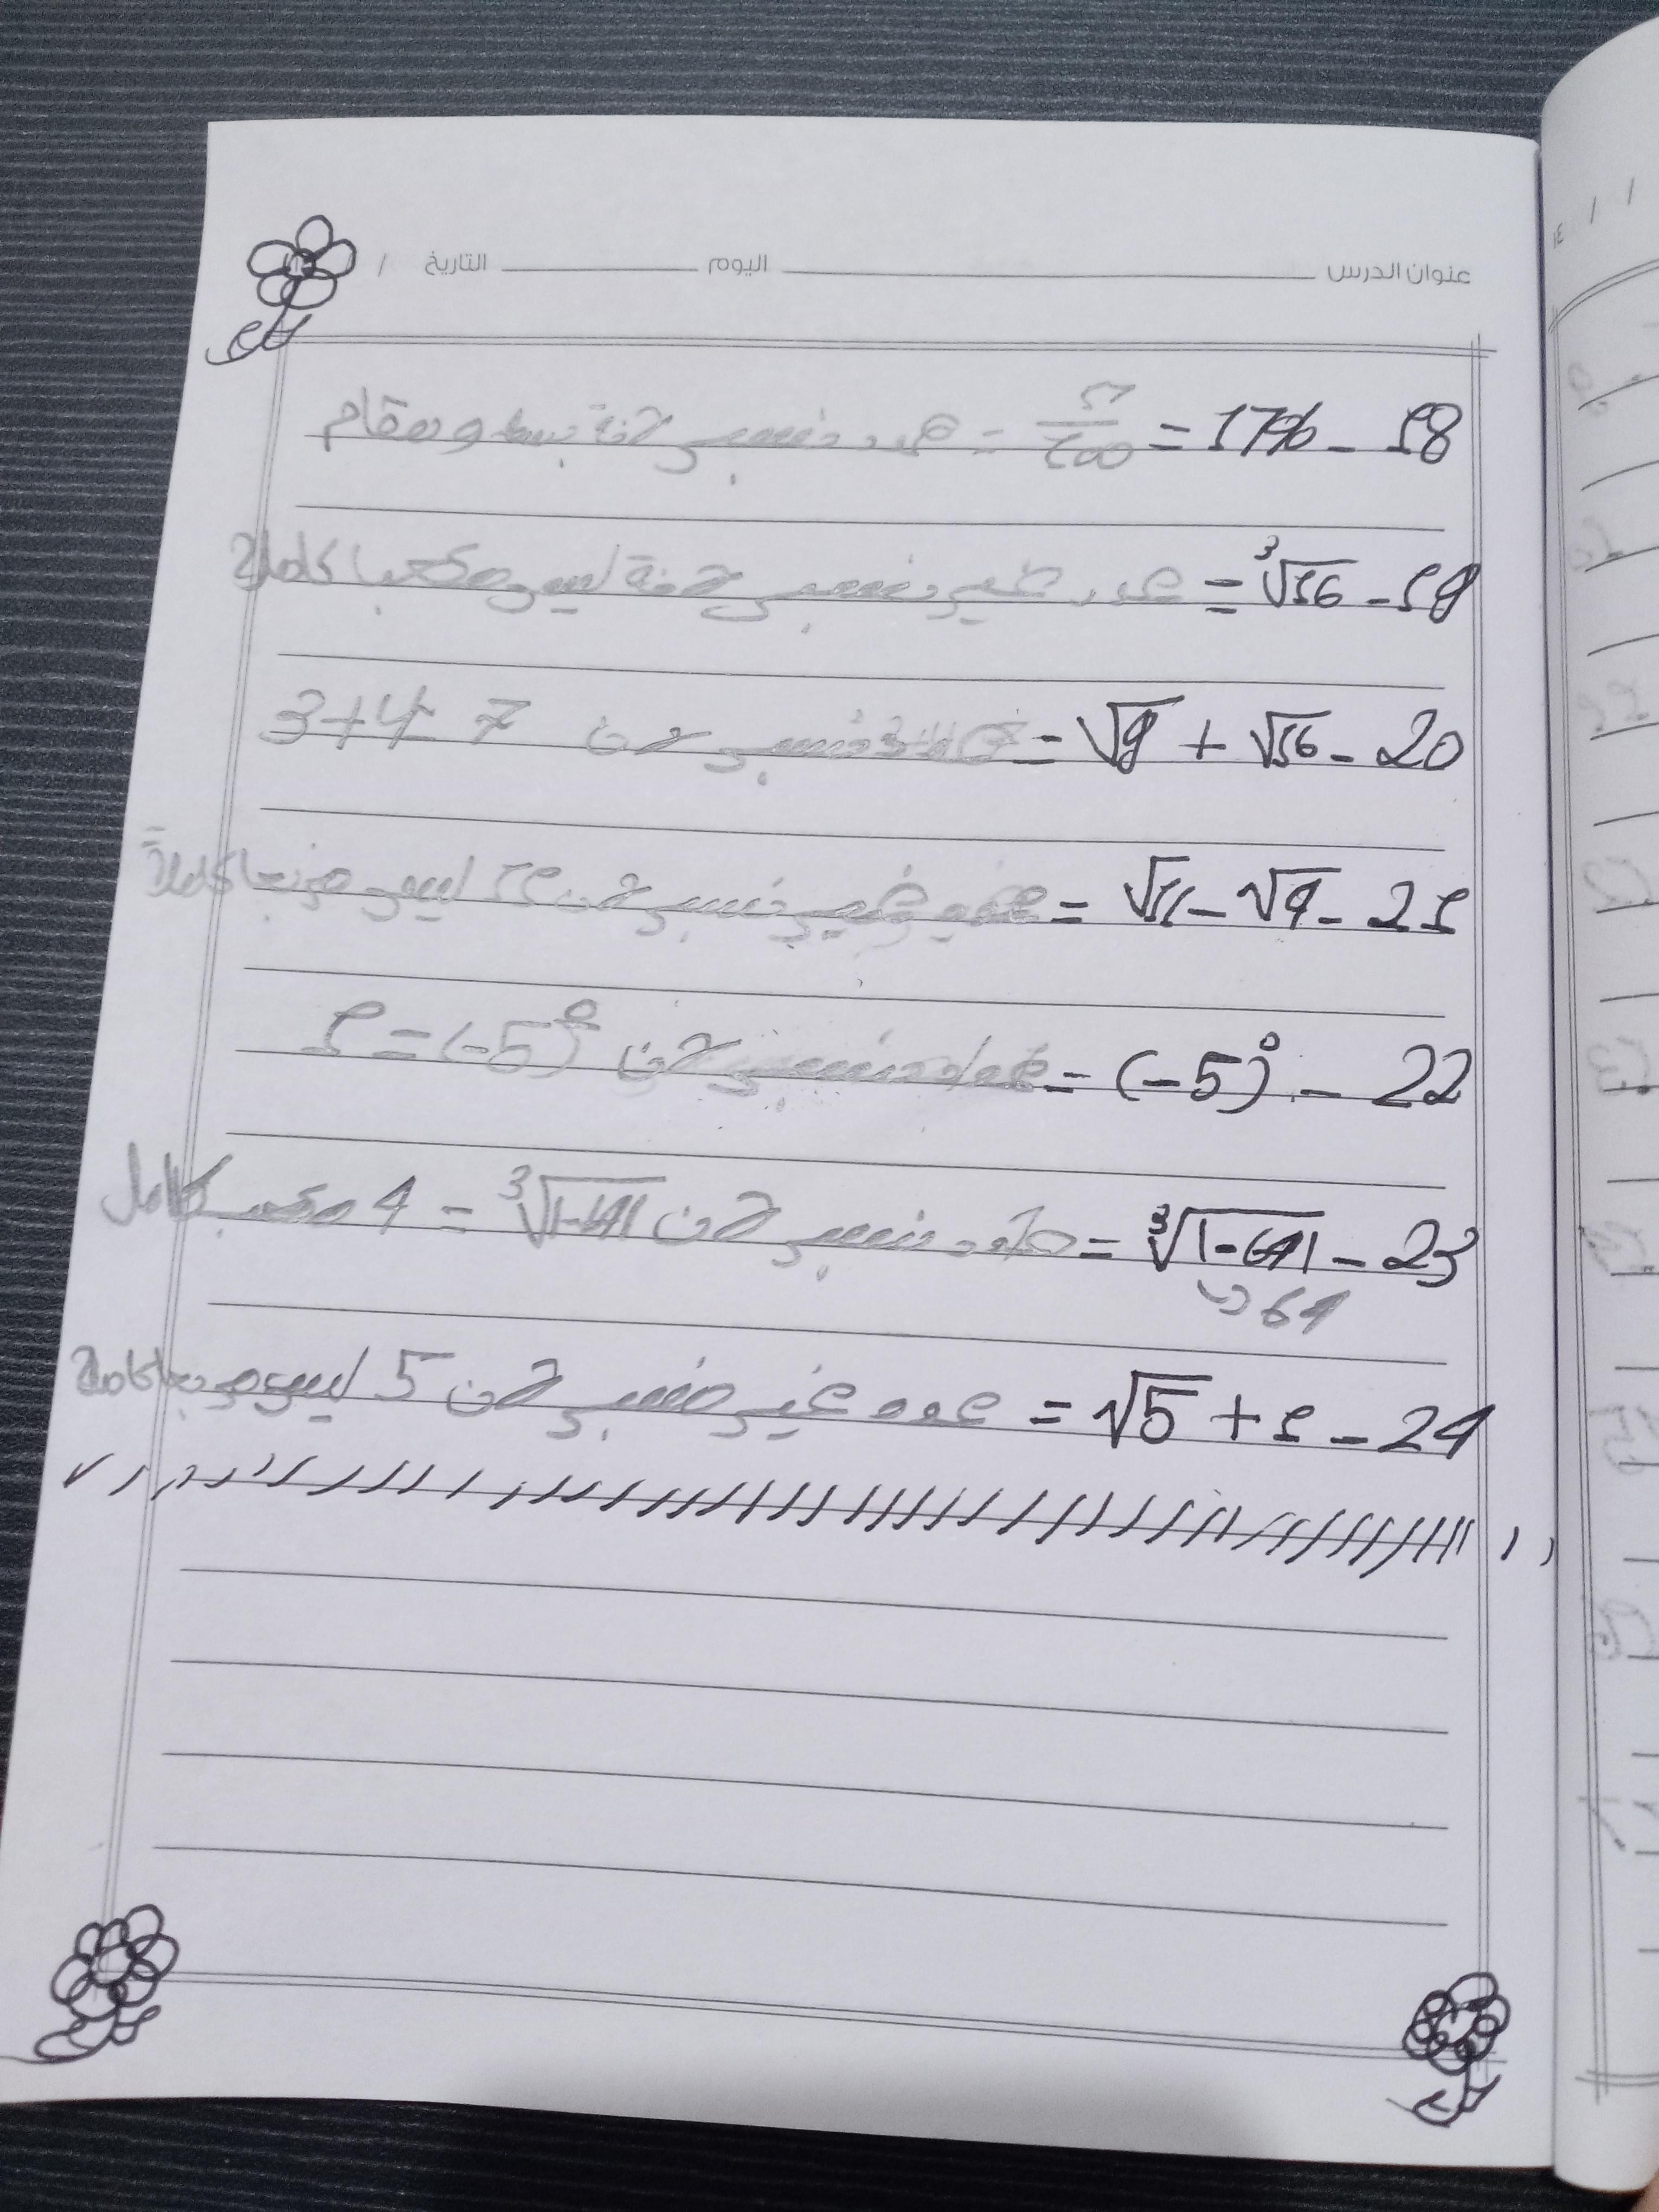 عنوان الدرس اليوم التاريخ / /
18 - 17% = 17/100 = عدد نسبي لانة بسط ومقام
19 - ³√16 = عدد غير نسبي لانة ليس مكعبا كاملا
20 - √16 + √9 = نسبي لان 3+4 7
21 - √9 - √11 = عدد غير نسبي لان 11 ليس مربعا كاملاً
22 - (-5)⁰ = عدد نسبي لان (-5)⁰ = 1
23 - ³√|-64| = عدد نسبي لان ³√|-64| = 4 مكعب كامل
64
24 - √5 + 1 = عدد غير نسبي لان 5 ليس مربعا كاملا